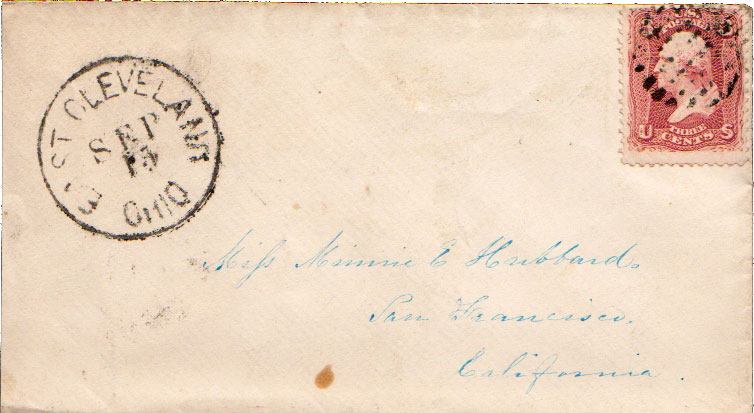 EAST CLEVELAND
SEP
15
OHIO
U.S.
POSTAGE
U THREE S
CENTS
Miss Minnie E Hubbard.
San Francisco.
California.